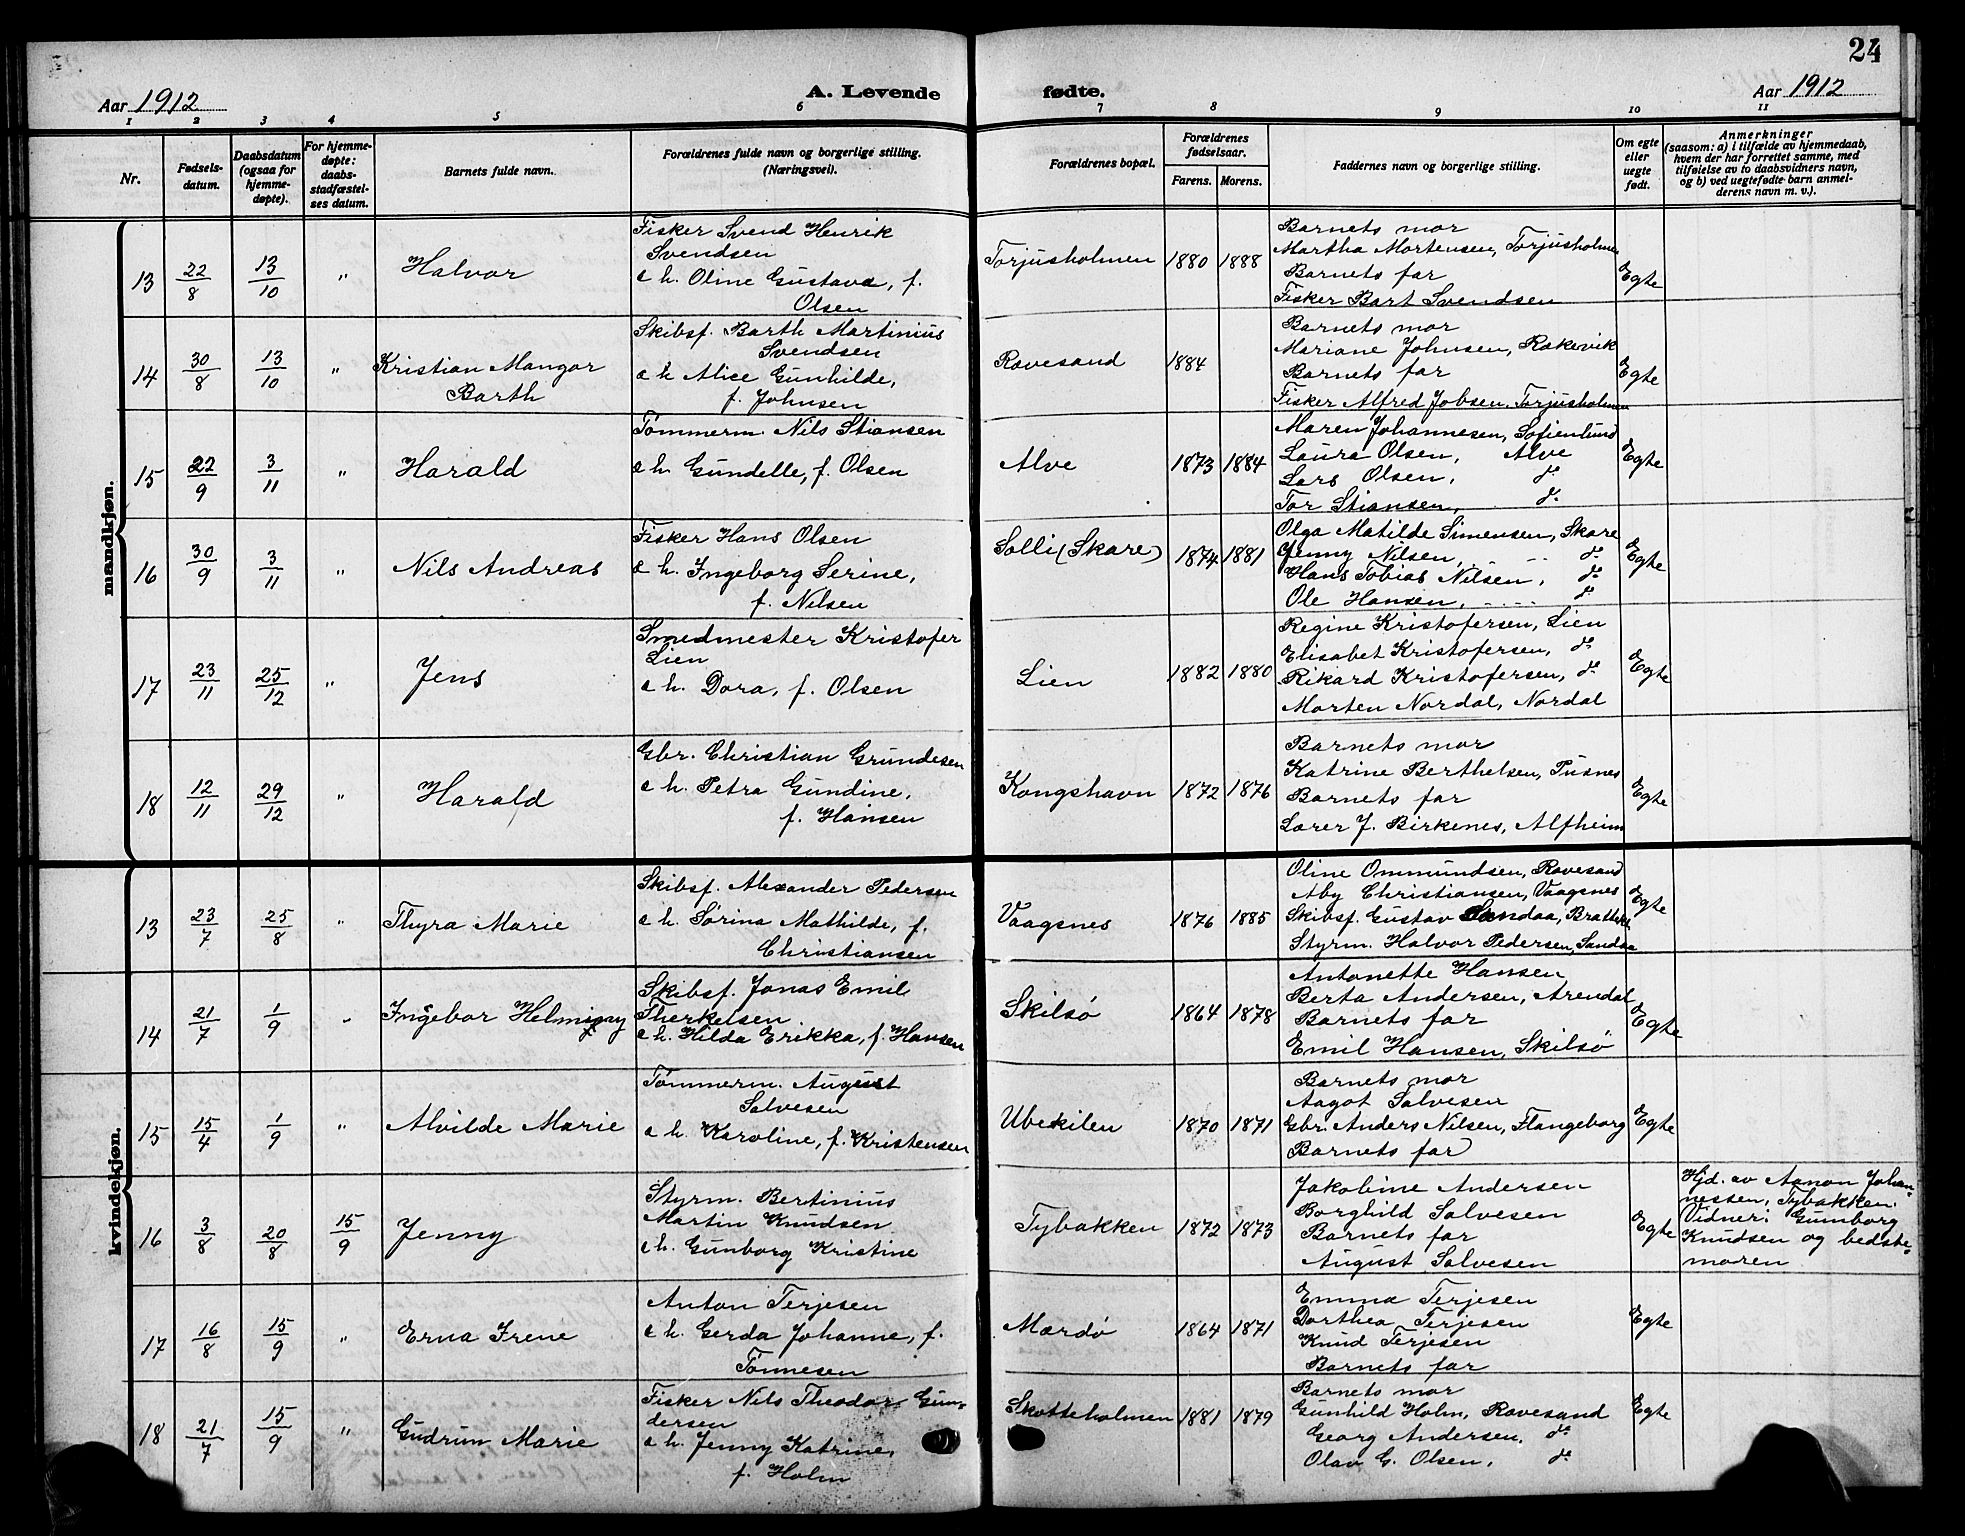 24
Aar 1912
A. Levende
fødte.
Aar 1912
1 2 3 4 5 6 7 8 9 10 11
Nr.
Fødsels-
datum.
Daabsdatum
(ogsaa for
hjemme-
døpte).
For hjemme-
døpte:
daabs-
stadfæstel-
ses datum.
Barnets fulde navn.
Forældrenes fulde navn og borgerlige stilling.
(Næringsvei).
Forældrenes bopæl.
Forældrenes
fødselsaar.
Farens. Morens.
Faddernes navn og borgerlig stilling.
Om egte
eller
uegte
født.
Anmerkninger
(saasom: a) i tilfælde av hjemmedaab,
hvem der har forrettet samme, med
tilføielse av to daabsvidners navn,
og b) ved uegtefødte barn anmel-
derens navn m. v.).
mandkjøn.
13 22/8 13/10 " Halvor
Fisker Svend Henrik
Svendsen
o h. Oline Gustava, f.
Olsen
Torjusholmen 1880 1888
Barnets mor
Martha Mortensen, Torjusholmen
Barnets far
Fisker Bart Svendsen
Egte
14 30/8 13/10 " Kristian Mangor
Barth
Skibsf. Barth Martinius
Svendsen
o h Alice Gunhilde,
f. Johnsen
Ravesand 1884
Barnets mor
Mariane Johnsen, Rakevik
Barnets far
Fisker Alfred Jobsen, Torjusholmen
Egte
15 22/9 3/11 " Harald
Tømmerm. Nils Stiansen
o h. Gundelle, f. Olsen
Alve 1873 1884
Maren Johannesen, Sofienlund
Laura Olsen, Alve
Lars Olsen, d.
Tor Stiansen, d.
Egte
16 30/9 3/11 " Nils Andreas
Fisker Hans Olsen
o h. Ingeborg Serine,
f. Nilsen
Solli (Skare) 1874 1881
Olga Matilde Simensen, Skare
Jenny Nilsen, d.
Hans Tobias Nilsen, d.
Ole Hansen, d.
Egte
17 23/11 25/12 " Jens
Smedmester Kristofer
Lien
o h. Dora, f. Olsen
Lien 1882 1880
Regine Kristofersen, Lien
Elisabet Kristofersen, d.
Rikard Kristofersen, d.
Morten Nordal, Nordal
Egte
18 12/11 29/12 " Harald
Gbr. Christian Grundesen
o h. Petra Gundine,
f. Hansen
Kongshavn 1872 1876
Barnets mor
Katrine Berthelsen, Pusnes
Barnets far
Lærer J. Birkenes, Alfheim
Egte
kvindekjøn.
13 23/7 25/8 " Thyra Marie
Skibsf. Alexander Pedersen
o h. Sørina Mathilde, f.
Christiansen
Vaagsnes 1876 1885
Oline Ommundsen, Ravesand
Aby Christiansen, Vaagsnes
Skibsf. Gustav Sandaa,
Styrm. Halvor Pedersen, Sandaa
Egte
14 21/7 1/9 " Ingebor
Skibsf. Jonas Emil
Therkelsen
o h. Hilda Erikka, f. Hansen
Skilsø 1864 1878
Antonette Hansen
Berta Andersen, Arendal
Barnets far
Emil Hansen, Skilsø
Egte
15 15/4 1/9 " Alvilde Marie
Tømmerm. August
Salvesen
o h. Karoline, f. Kristensen
Ubekilen 1870 1871
Barnets mor
Aagot Salvesen
Gbr. Anders Nilsen, Flangeborg
Barnets far
Egte
16 3/8 20/8 15/9 Jenny
Styrm. Bertinius
Martin Knudsen
o h. Gunborg Kristine
Tybakken 1872 1873
Jakobine Andersen
Borghild Salvesen
Barnets far
August Salvesen
Egte
Hjd. av Aanon Johan-
nessen, Tybakken.
Vidner: Gunborg
Knudsen og bedste-
moren
17 16/8 15/9 " Erna Irene
Anton Terjesen
o h. Gerda Johanne, f.
Tønnesen
Mærdø 1864 1871
Emma Terjesen
Dorthea Terjesen
Knud Terjesen
Barnets far
Egte
18 21/7 15/9 " Gudrun Marie
Fisker Nils Theodor Gun-
dersen
o h. Jenny Katrine,
f. Holm
Skotteholmen 1881 1879
Barnets mor
Gunhild Holm, Ravesand
Georg Andersen, d.
Olav G. Olsen, d.
Egte